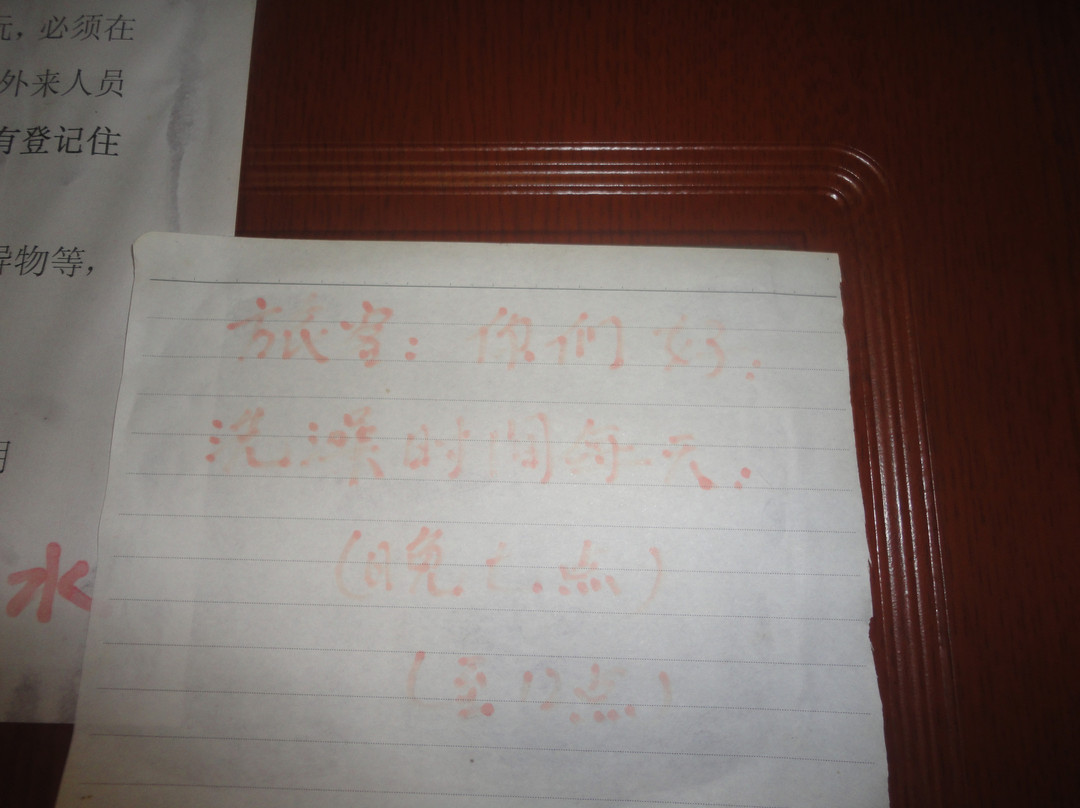 玩，必须在
外来人员
有登记住
异物等，
水
旅客：你们好.
洗澡时间每天.
(晚七点)
(至12点)